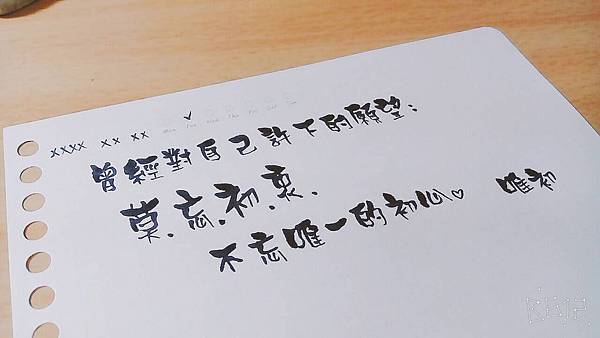 xxxx xx xx
曾經對自己許下的願望：
莫.忘.初.衷.
不忘唯一的初心♡ 唯初